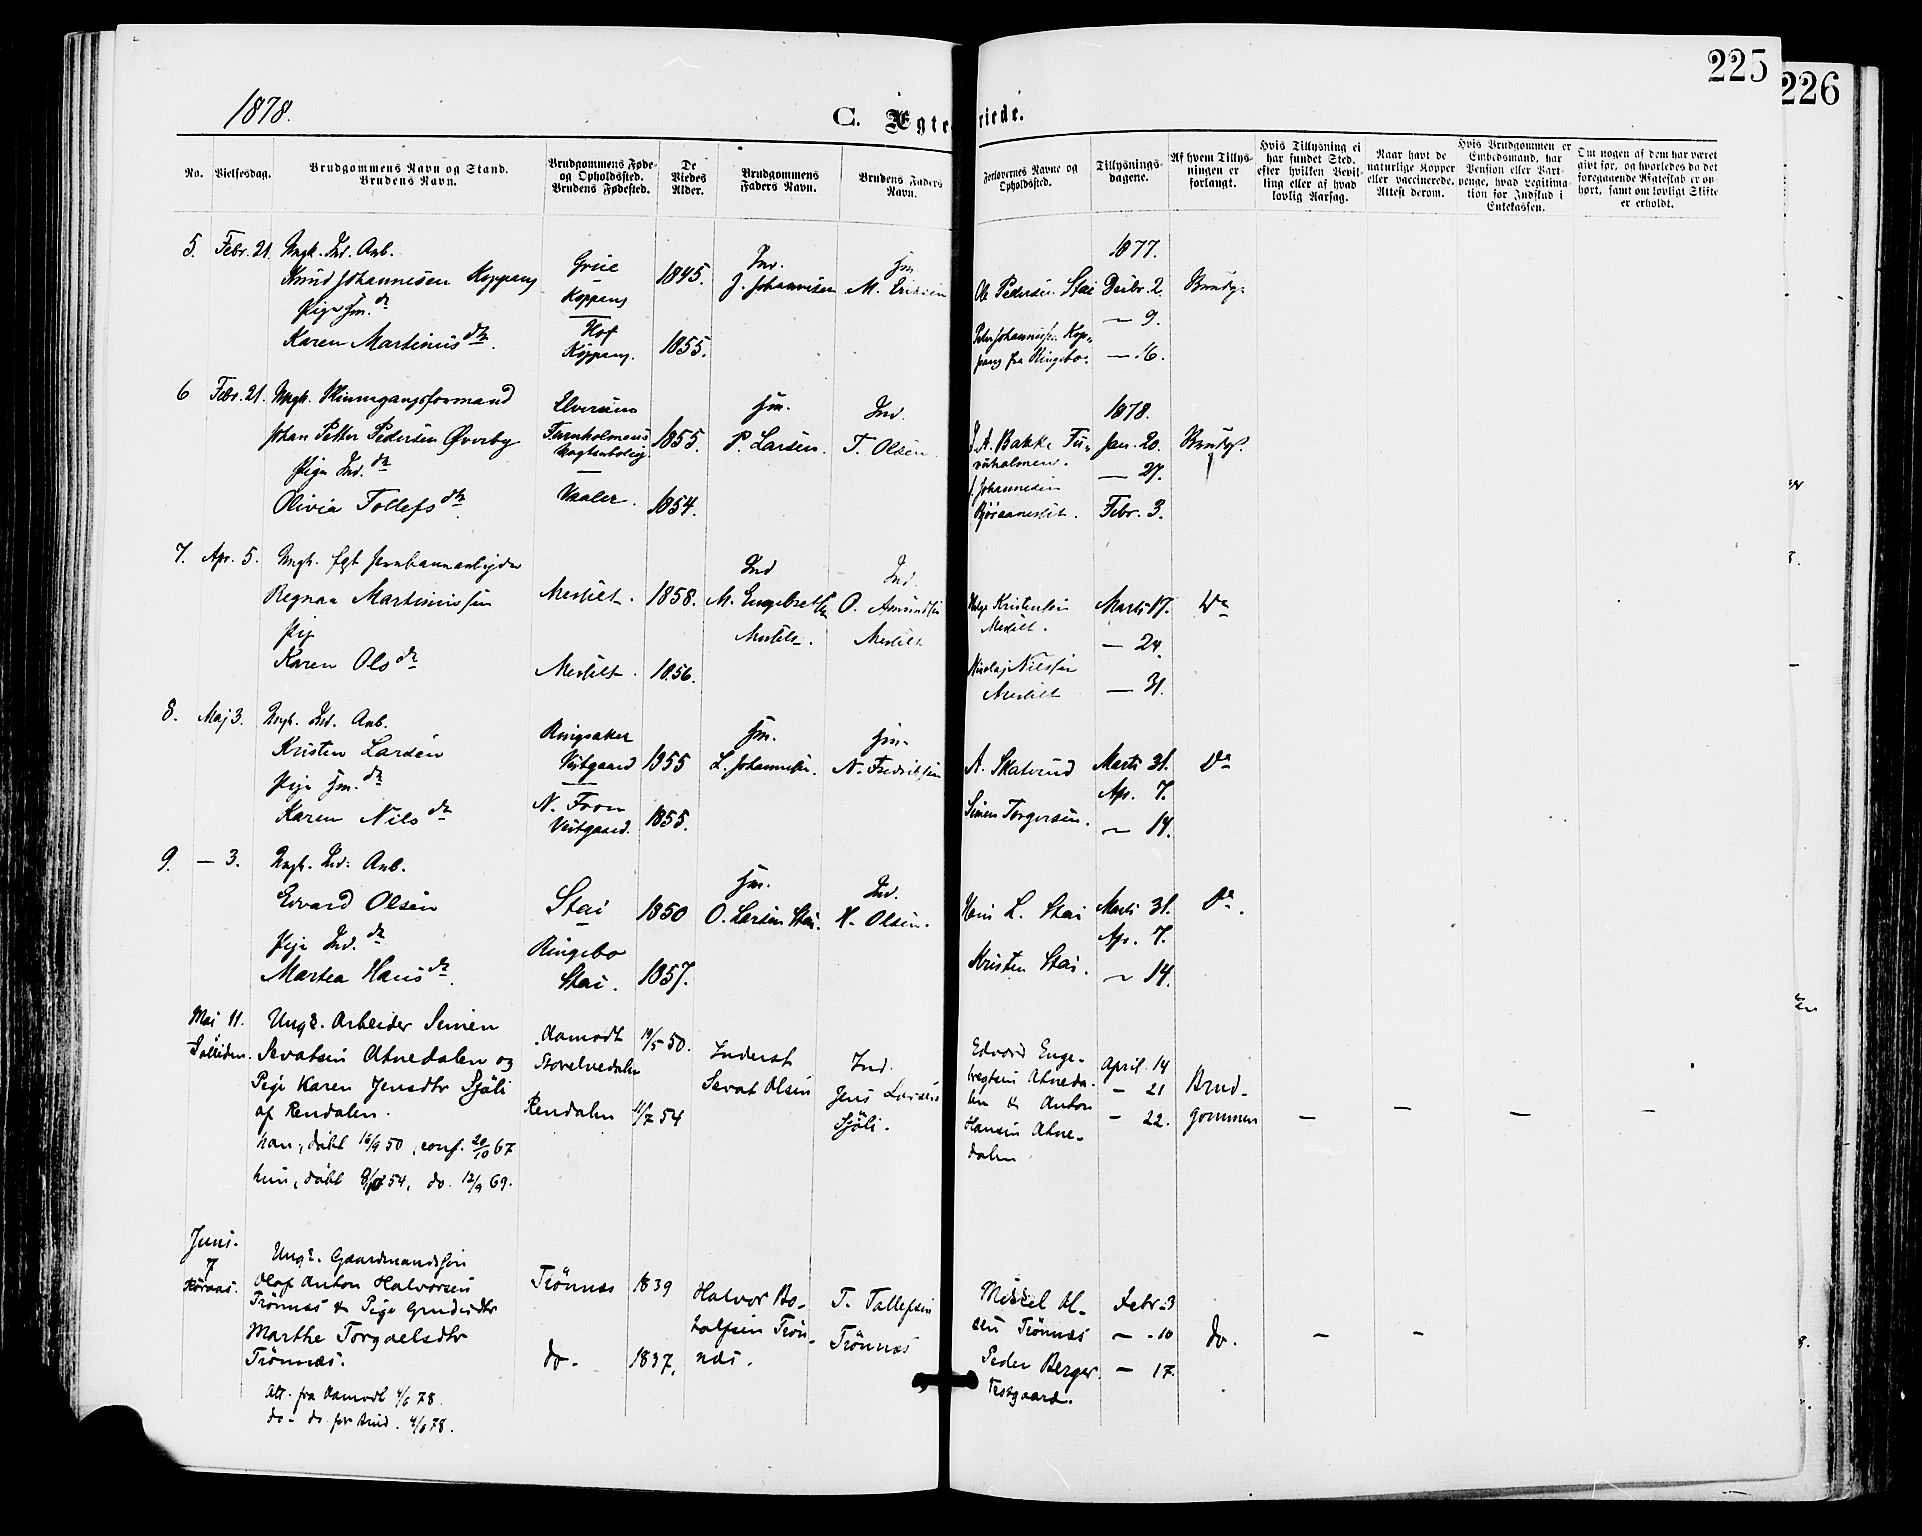 225
226
1878.
C. Ægte
riede.
No.
Vielsesdag.
Brudgommens Navn og Stand.
Brudens Navn.
Brudgommens Føde-
og Opholdssted.
Brudens Fødested.
De
Viedes
Alder.
Brudgommens
Faders Navn.
Brudens Faders
Navn.
Forlovernes Navne og
Opholdssted.
Tillysnings-
dagene.
Af hvem Tillys-
ningen er
forlangt.
Hvis Tillysning ei
har fundet Sted,
efter hvilken Bevil-
ling eller af hvad
lovlig Aarsag.
Naar havt de
naturlige Kopper
eller vaccinerede.
Attest derom.
Hvis Brudgommen er
Embedsmand, har
Pension eller Vart-
penge, hvad Legitima-
tion for Indskud i
Enkekassen.
Om nogen af dem har været
gift før, og hvorledes da det
foregaaende Ægteskab er op-
hørt, samt om lovligt Skifte
er erholdt.
5. Febr. 21 Ungk. Ind. Arb.
Knud Johannesen Koppang
Pige Hm. dr
Karen Martinius dtr.
Grue
Koppang
Hof
Koppang.
1845.
1855.
Ind.
J. Johannesen
Hm
M. Eriksen
Ole Pedersen Stai
Peder Johannesen Kop-
pang fra Ringebo.
1877.
Decbr. 2.
— 9.
— 16.
Brudg.
6 Febr. 21. Ungk. Skinnegangsformand
Johan Petter Pedersen Øverby
Pige Ind. dtr
Olivia Tollefs dtr.
Elverum
Furuholmens
Vogterbolig.
Vaaler.
1855.
1854.
Hm.
P. Larsen.
Ind.
T. Olsen.
A. Bakke Fu-
ruholmen.
J. Johannesen
Bjøraanesset.
1878.
Jan. 20.
— 27.
Febr. 3.
Brudg.
7. Apr. 5. Ungk. Jernbanearbejder
Regnar Martiniussen
Pig
Karen Ols dr
Messelt.
Messelt.
1858.
1856.
Ind
M. Engebrets.
Messelt.
Ind.
O. Amundsen
Messelt
Helge Kristensen
Messelt.
Nicolaj Nilssen
Messelt
Marts 17.
— 24.
— 31.
Do
8. Maj 3. Ungk. Ind. Arb.
Kristen Larsen
Pige Hm. dr
Karen Nils dr
Ringsaker
Vestgaard
N. Fron
Vestgaard.
1855
1855.
Hm.
L. Johannesen.
Hm.
N. Fredriksen
A. Skaterud
Simen Torgersen.
Marts 31.
Apr. 7.
— 14.
Do
9. — 3. Ungk. Ind. Arb.
Edvard Olsen
Pige Ind. dr
Martea Hans dr.
Stai
Ringebo
Stai.
1850
1857.
Hm.
O. Larsen Stai.
Ind.
H. Olsen.
Hans L. Stai
Kristen Stai.
Marts 31.
Apr. 7.
— 14.
Do.
Mai 11.
Solliden.
Ungk. Arbeider Simen
Sevatsen Atnedalen og
Pige Karen Jensdtr Sjøli
af Rendalen.
han, døbt 16/9 50, conf. 20/10 67
hun, døbt 54, do. 12/9 69.
Aamodt
Storelvedalen
Rendalen
19/5 50.
11/7 54
Inderst
Sevat Olsen
Ind.
Jens Larsen
Sjøli.
Edvard Enge-
bregtsen Atneda-
len & Anton
Hansen Atne-
dalen
April 14
— 21
— 22.
Brud-
gommen
— — — —
Juni
7
Ungk. Gaardmandssøn
Olaf Anton Halvorsen
Trönnæs & Pige Gmdsdtr
Marthe Torgalsdtr
Trönnæs.
Att. fra Aamodt 4/6 78.
do- do for Brud. 4/6 78.
Trönnæs
do-
1839
1837.
Halvor Bo-
tolfsen Trön-
næs.
T. Tollefsen
Trönnæs
Mikkel Ol-
sen Trönnæs
Peder Berger
Trosgaard.
Febr 3
— 10
— 17.
do.
— —